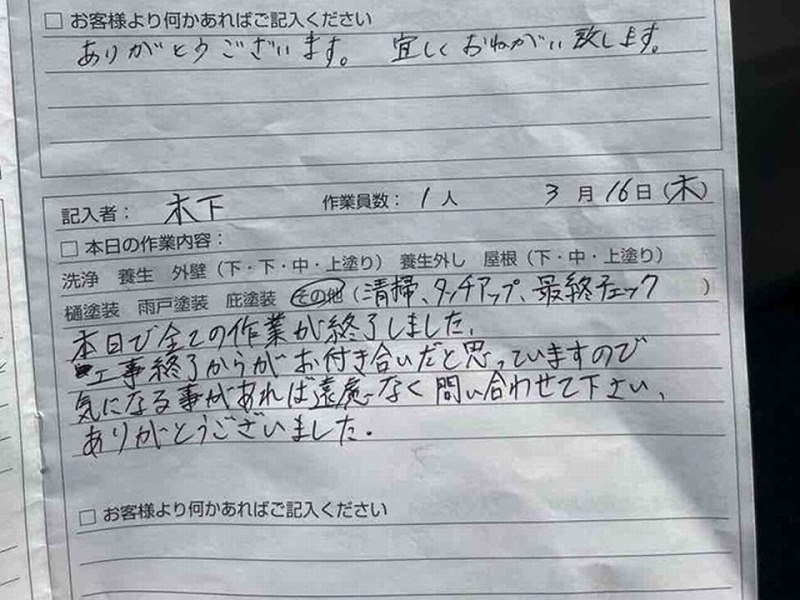 □ お客様より何かあればご記入ください
ありがとうございます。 宜しくおねがい致します。
記入者： 木下 作業員数： 1 人 3 月 16 日（木）
□ 本日の作業内容：
洗浄 養生 外壁（下・下・中・上塗り） 養生外し 屋根（下・中・上塗り）
樋塗装 雨戸塗装 庇塗装 その他（清掃、タッチアップ、最終チェック ）
本日で全ての作業が終了しました、
工事終了からがお付き合いだと思っていますので
気になる事があれば遠慮なく問い合わせて下さい、
ありがとうございました.
□ お客様より何かあればご記入ください